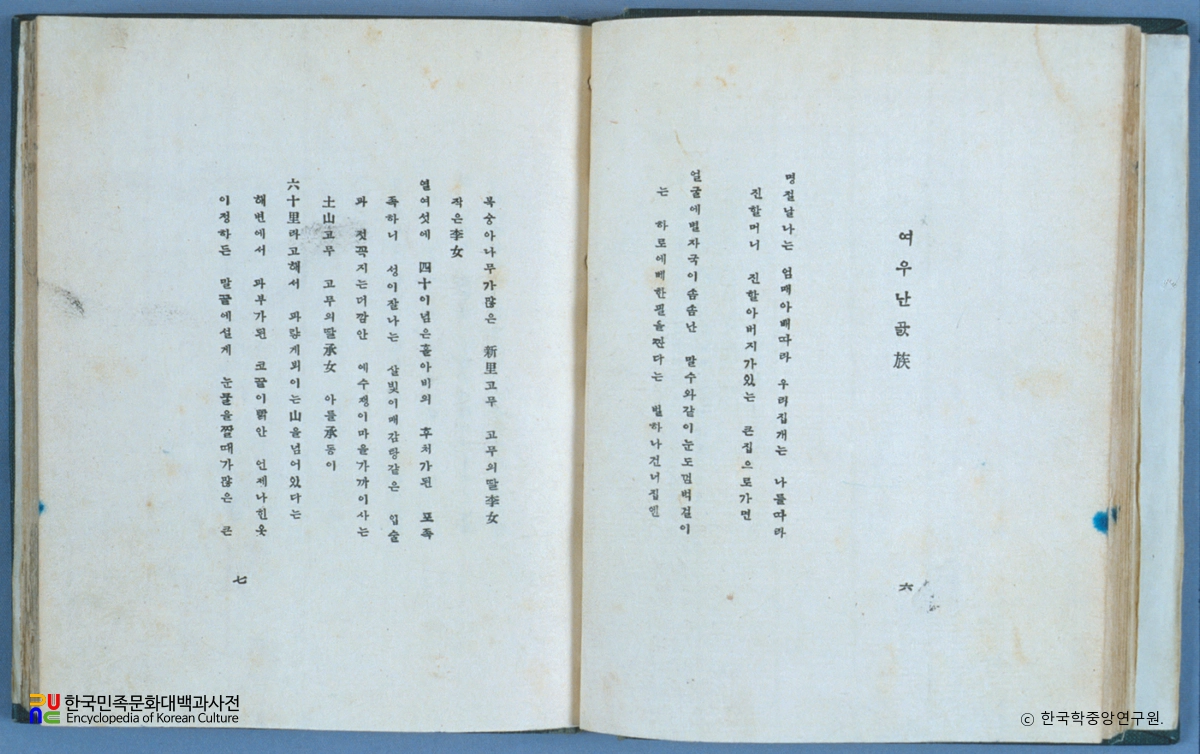 여우난곬族
명절날나는 엄매아배따라 우리집개는 나를따라
진할머니 진할아버지가있는 큰집으로가면
얼굴에별자국이솜솜난 말수와같이눈도껌벅걸이
는 하로에베한필을짠다는 벌하나건너집엔
六
복숭아나무가많은 新里고무 고무의딸李女
작은李女
열여섯에 四十이넘은홀아비의 후처가된 포족
족하니 성이잘나는 살빛이매감탕같은 입술
과 젓꼭지는더깜안 예수쟁이마을가까이사는
土山고무 고무의딸承女 아들承동이
六十里라고해서 파랗게뵈이는山을넘어있다는
해변에서 과부가된 코끝이빩안 언제나힌옷
이정하든 말끝에설게 눈물을짤때가많은 큰
七
한국민족문화대백과사전
Encyclopedia of Korean Culture
ⓒ 한국학중앙연구원.